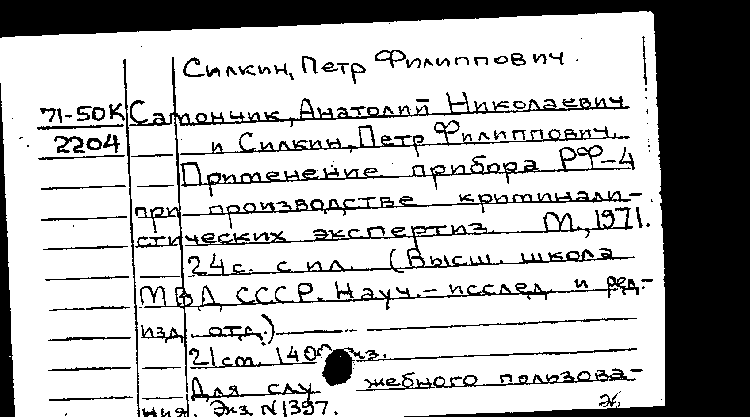 Силкин, Петр Филиппович.
71-50К Самончик, Анатолий Николаевич
2204 и Силкин, Петр Филиппович.
Применение прибора РФ-4
при производстве криминали-
стических экспертиз. М., 1971.
24 с. с ил. (Высш. школа
МВД СССР. Науч.-исслед. и ред.-
изд. отд.)
21 см. 1400 кз.
Для слу жебного пользова-
ния. Экз. N 1397.